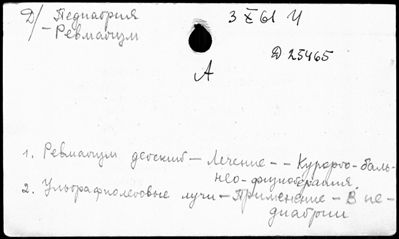 Д/ Педиатрия
— Ревматизм
3 X 61 И
Д 25465
А
1. Ревматизм детский — Лечение — — Курорто-баль-
нео-физиотерапия.
2. Ультрафиолетовые лучи — Применение — В пе-
диатрии